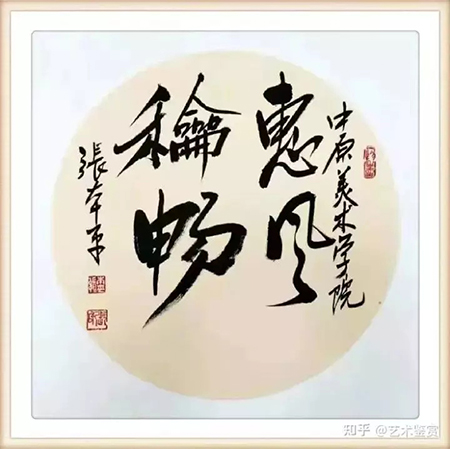 中原美术学院
惠风
龢畅
張本平
知乎 @艺术鉴赏